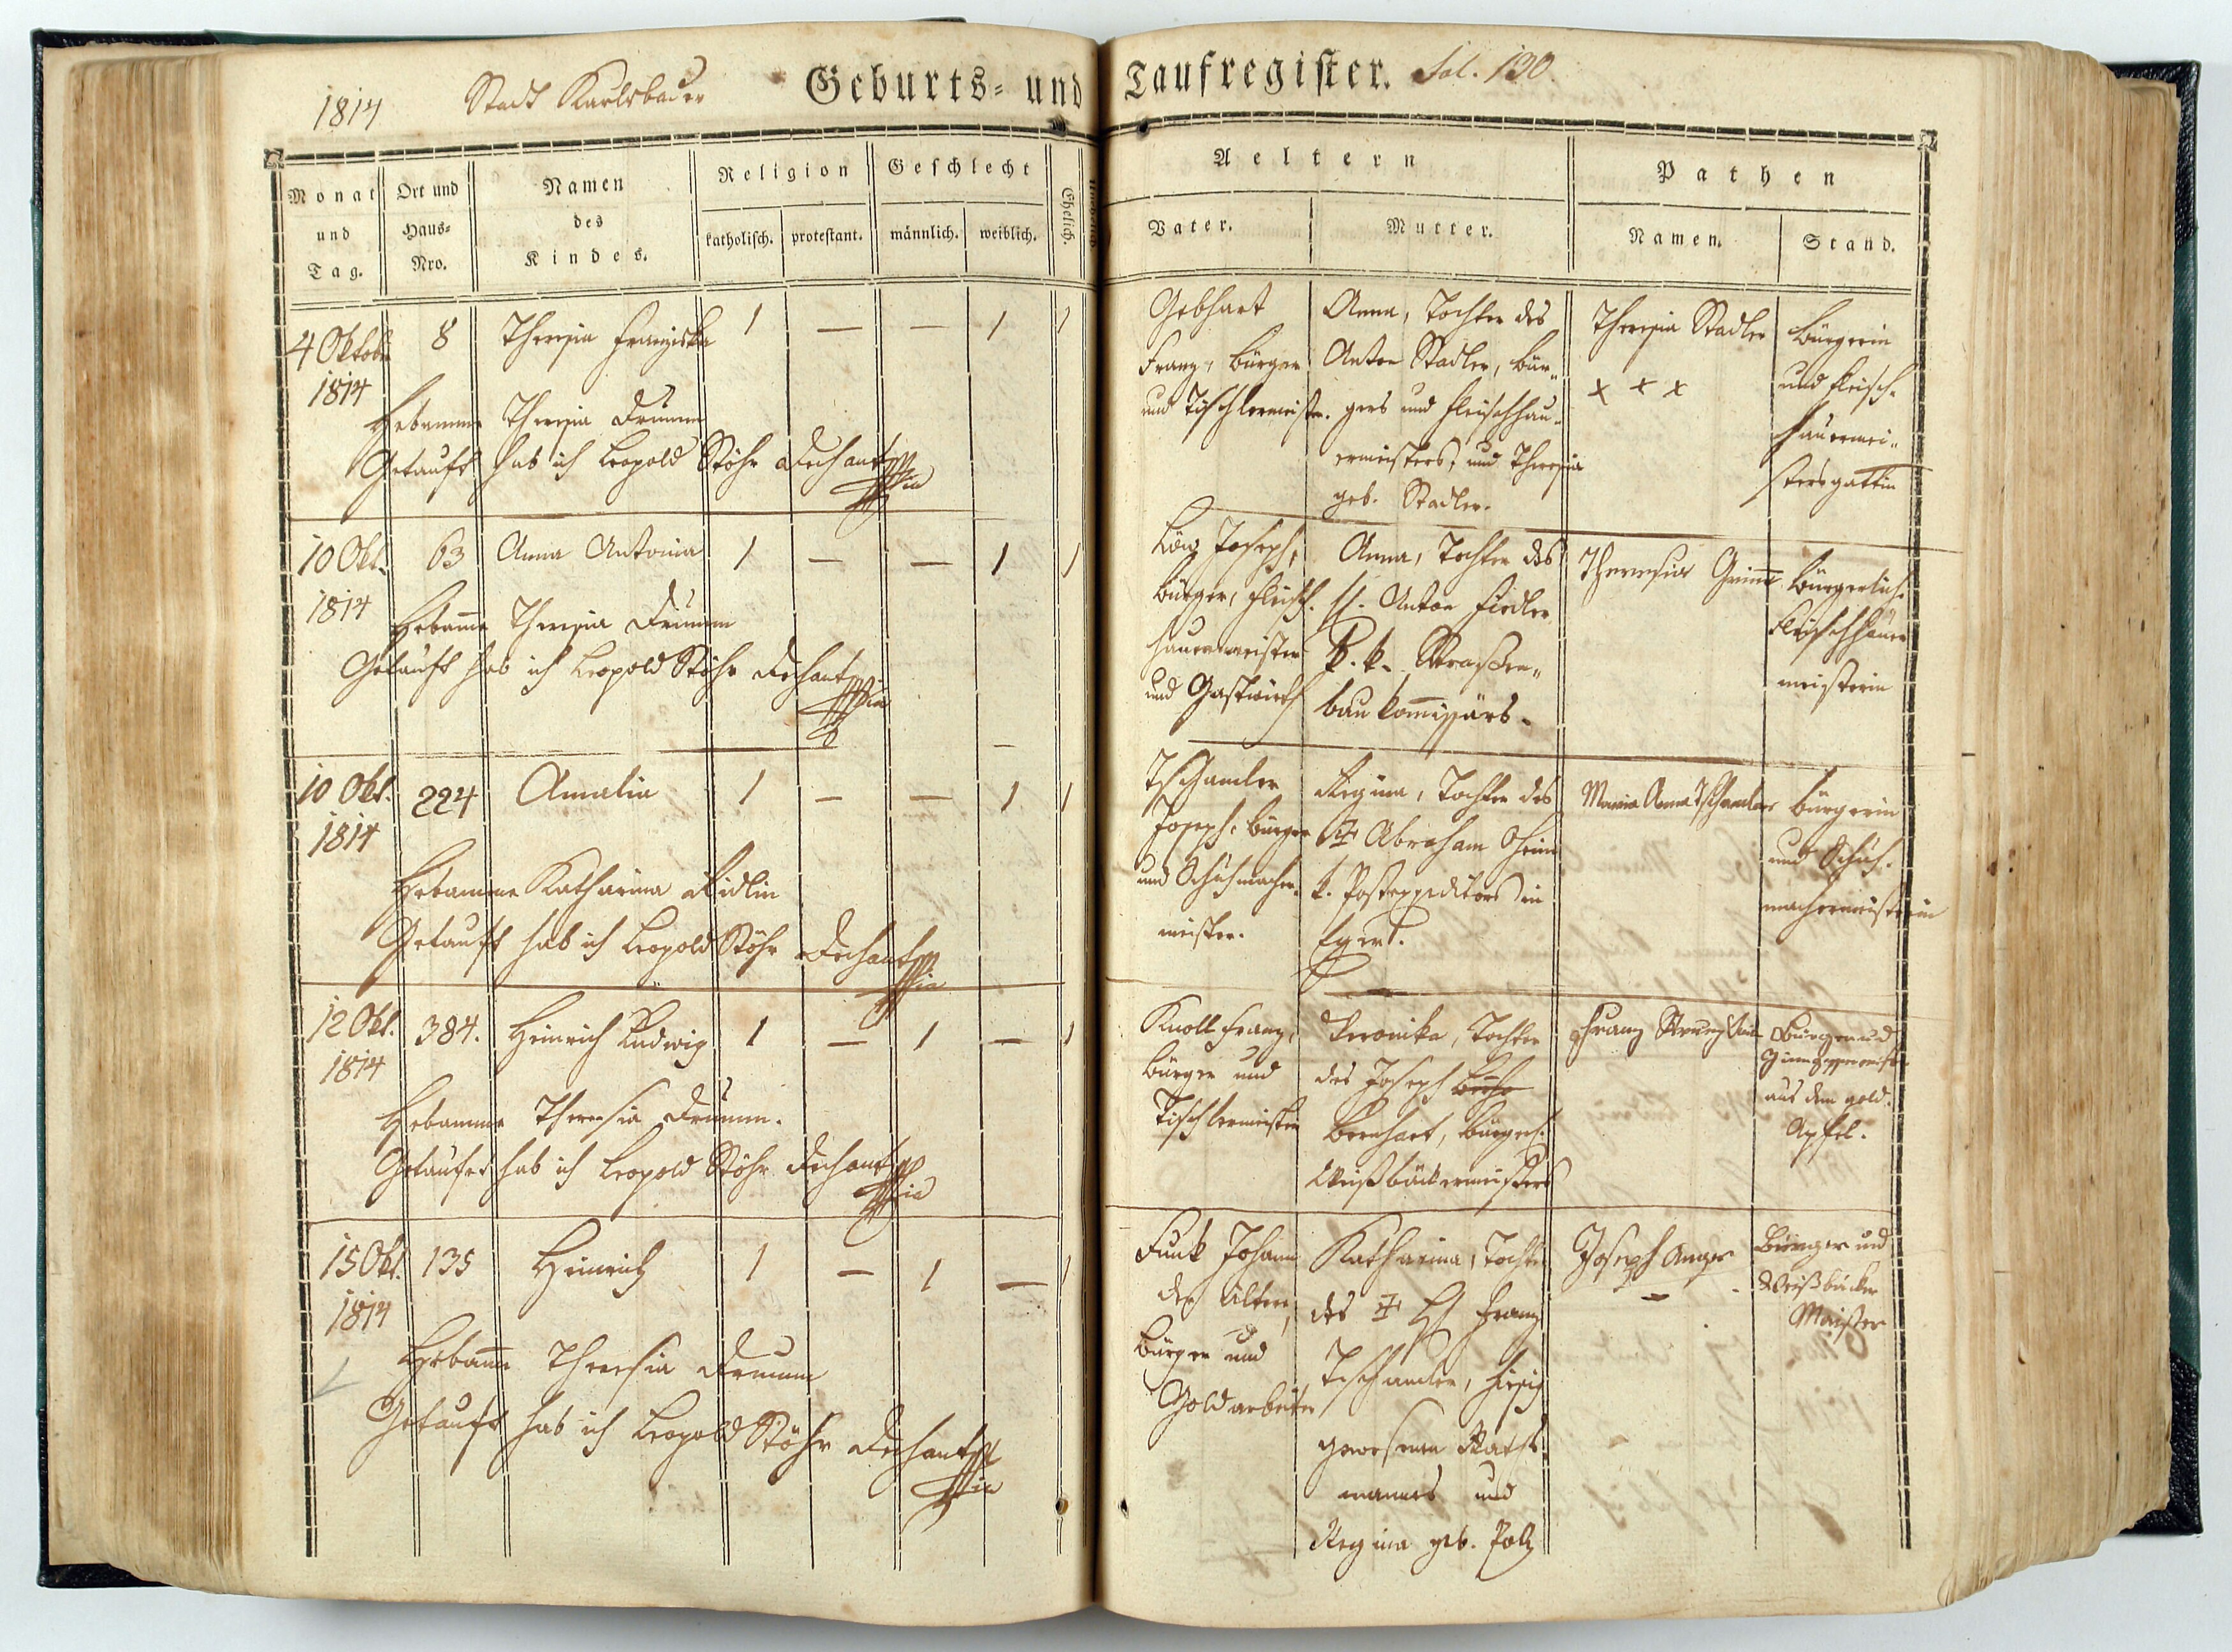 1814 Stadt Karlsbader Geburts- und Taufregister. Fol. 130.
Monat und Tag.
Ort und Haus- Nro.
Namen des Kindes.
Religion
katholisch. protestant.
Geschlecht
männlich. weiblich.
Ehelich.
Aeltern
Vater. Mutter.
Pathen
Namen. Stand.
4 Oktob. 8 Theresia Franziska 1 — — 1 1
1814
Hebamme Theresia Drumm
Getauft hab ich Leopold Stöhr Dechant
Gebhart
Franz, Bürger
und Tischlermeister.
Anna, Tochter des
Anton Stadler, bür-
gers und Fleischhau-
ermeisters, und Theresia
geb. Stadler.
Theresia Stadler
x x x
bürgerin
und Fleisch-
hauermei-
stersgattin
10 Okt. 63 Anna Antonia 1 — — 1 1
1814
Hebamme Theresia Drumm
Getauft hab ich Leopold Stöhr Dechant
Löw Joseph,
bürger, Fleisch-
hauermeister
und Gastwirth
Anna, Tochter des
H. Anton Fiedler
k. k. Straßen-
baukommissärs.
Theresia Grimm
bürgerlich.
Fleischhauer
meisterin
10 Okt. 224 Amalia 1 — — 1 1
1814
Hebamme Katharina Ridlin
Getauft hab ich Leopold Stöhr Dechant
Tschamler
Joseph, bürger
und Schuhmacher-
meister.
Regina, Tochter des
Abraham
k. Postexpeditors in
Eger.
Maria Anna Tschamler
bürgerin
und Schuh-
machermeisterin
12 Okt. 384. Heinrich Ludwig 1 — 1 — 1
1814
Hebamme Theresia Drumm.
Getauft hab ich Leopold Stöhr Dechant
Knoll Franz,
bürger und
Tischlermeister
Veronika, Tochter
des Joseph
Bernhart, bürgerl.
Weißbäckermeisters
Franz
Bürger und
Zinngießermeister
aus dem gold.
Apfel.
15 Okt. 135 Heinrich 1 — 1 — 1
1814
Hebamme Theresia Drumm
Getauft hab ich Leopold Stöhr Dechant
Funk Johann
der ältere,
Bürger und
Goldarbeiter
Katharina, Tochter
des H Franz
Tschamler, hiesig
gewesenen Raths-
manns und
Regina geb. Polz
Joseph Anger
Bürger und
Weißbäcker
Meister